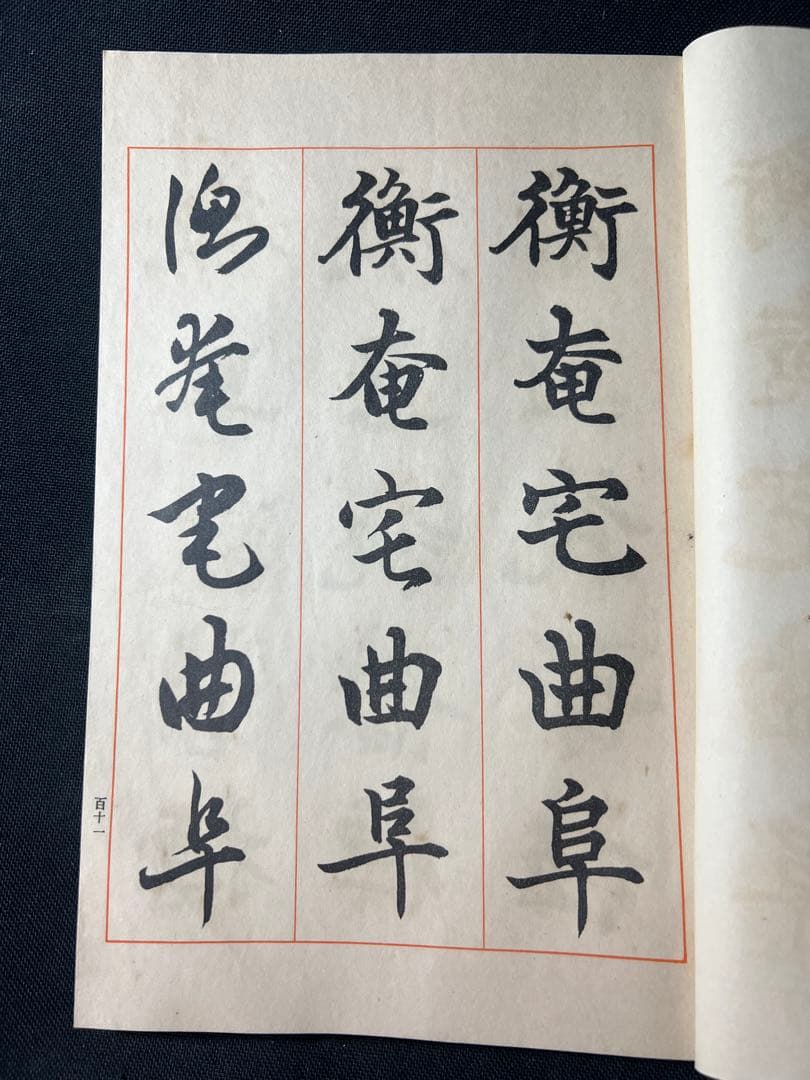 衡奄宅曲阜
衡奄宅曲阜
衡奄宅曲阜
百十一